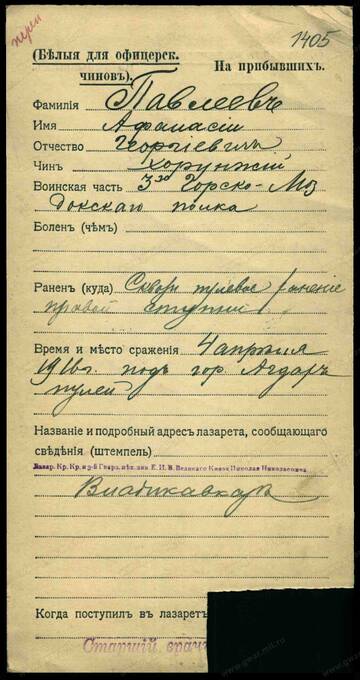 перен
1405
(Бѣлыя для офицерск.
чиновъ).
На прибывшихъ.
Фамилія Павлеевъ
Имя Афанасій
Отчество Георгіевичъ
Чинъ Хорунжій
Воинская часть 3го Горско-Моз
докскаго полка
Боленъ (чѣмъ)
Раненъ (куда) Сквозн пулевое раненіе
правой ступни
Время и мѣсто сраженія 4 апрѣля
1916 г. подъ гор.
пулей
Названіе и подробный адресъ лазарета, сообщающаго
свѣдѣнія (штемпель)
Лазар. Кр. Кр. Е. И. В. Великаго Князя Николая Николаевича
Владикавказъ
Когда поступилъ въ лазаретъ
Старшій врачъ
www.gwar.mil.ru